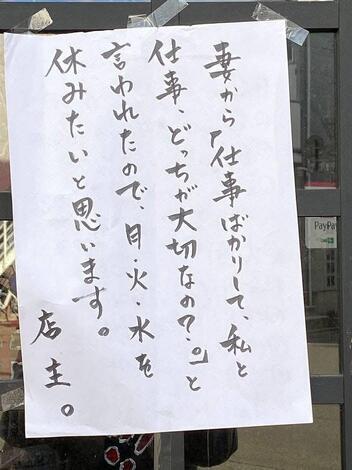 妻から「仕事ばかりして、私と
仕事、どっちが大切なの?。」と
言われたので、月・火・水を
休みたいと思います。
店主。
PayPa